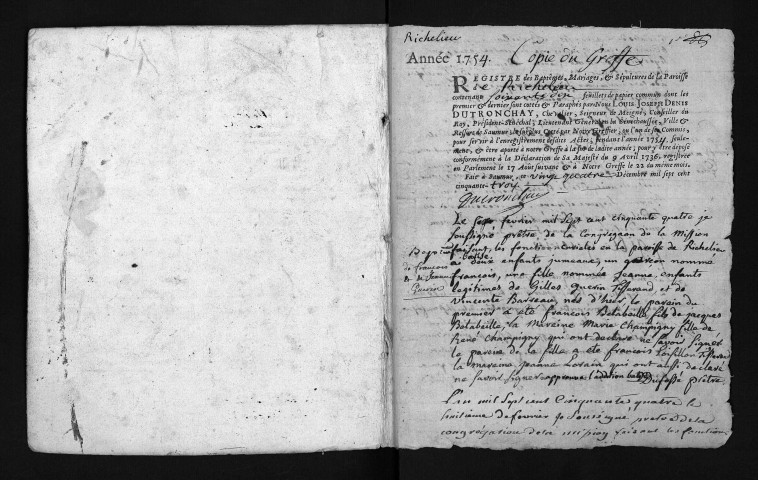 Richelieu
Année 1754. Copie du Greffe
REGISTRE des Baptêmes, Mariages, & Sépultures de la Paroisse
de Richelieu
contenant soixante dix feuillets de papier commun dont les
premier & dernier sont cottés & Paraphés par Nous LOUIS-JOSEPH DENIS
DUTRONCHAY, Chevalier, Seigneur de Meigné, Conseiller du
Roy, Président-Sénéchal, Lieutenant Général en la Sénéchaussée, Ville &
Ressort de Saumur, le surplus cotté par Notre Greffier, ou l'un de ses Commis,
pour servir à l'enregistrement desdits Actes, pendant l'année 1754. seule-
ment, & être aporté à notre Greffe à la fin de ladite année; pour y être déposé
conformément à la Déclaration de Sa Majesté du 9 Avril 1736, registrée
en Parlement le 17 Août suivant & à Notre Greffe le 22 du même mois.
Fait à Saumur, ce vingt quatre Décembre mil sept cent
cinquante-trois
Le fevrier mil Sept cent cinquante quatre je
Soussigné prêtre de la Congregation de la Mission
faisant les fonctions curiales en la paroisse de Richelieu
a deux enfants jumeaux, un garson nommé
françois, une fille nommée Jeanne, enfants
legitimes de Gilles Guerin et de
Vincente Barreau, nés d'hier, le parain du
premier a été francois Betabeille fils de jacques
Betabeille, la Mareine Marie Champigny fille de
René Champigny qui ont declaré ne savoir Signer
le parein de la fille a été francois
la mareine jeanne Lorain qui ont aussi declaré
ne savoir signer prêtre
L'an mil Sept cent Cinquante quatre le
de fevrier je Soussigné pretre de la
congregation de la mission faisant les fonctions
Baptême
de françois
& de Jeanne
Guerin